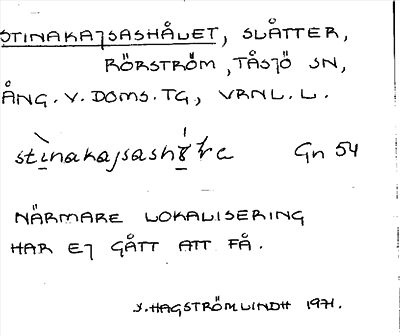 STINAKAJSASHÅLET, SLÅTTER,
RÖRSTRÖM, TÅSJÖ SN,
ÅNG. V. DOMS. TG, VRNL. L.
Gn 54
NÄRMARE LOKALISERING
HAR EJ GÅTT ATT FÅ.
J. HAGSTRÖM LINDH 1971.